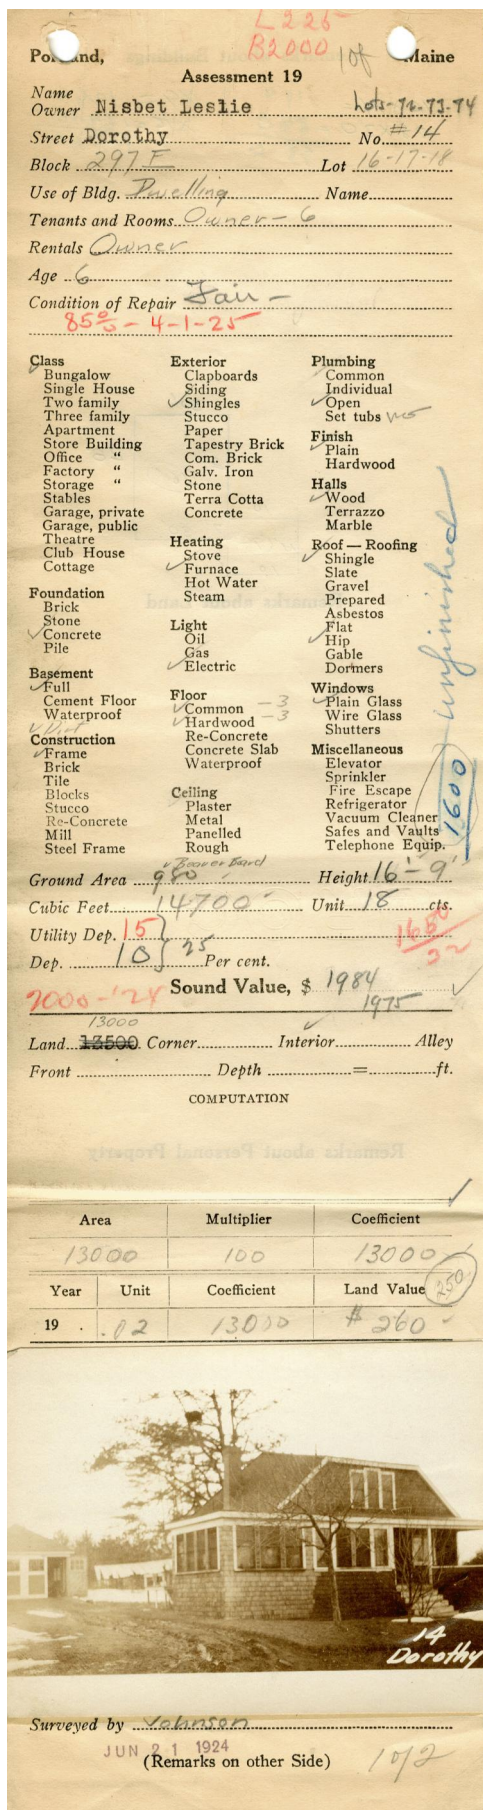 L 225
B2000 1 of
Portland, Maine
Assessment 19
Name
Owner Nisbet Leslie Lots-72-73-74
Street Dorothy No. #14
Block 297 F Lot 16-17-18
Use of Bldg. Dwelling Name
Tenants and Rooms Owner - 6
Rentals Owner
Age 6
Condition of Repair Fair -
85% - 4-1-25
Class
Bungalow
Single House
Two family
Three family
Apartment
Store Building
Office "
Factory "
Storage "
Stables
Garage, private
Garage, public
Theatre
Club House
Cottage
Foundation
Brick
Stone
Concrete
Pile
Basement
Full
Cement Floor
Waterproof
Dirt
Construction
Frame
Brick
Tile
Blocks
Stucco
Re-Concrete
Mill
Steel Frame
Exterior
Clapboards
Siding
Shingles
Stucco
Paper
Tapestry Brick
Com. Brick
Galv. Iron
Stone
Terra Cotta
Concrete
Heating
Stove
Furnace
Hot Water
Steam
Light
Oil
Gas
Electric
Floor
Common - 3
Hardwood - 3
Re-Concrete
Concrete Slab
Waterproof
Ceiling
Plaster
Metal
Panelled
Rough
Beaver Board
Plumbing
Common
Individual
Open
Set tubs no
Finish
Plain
Hardwood
Halls
Wood
Terrazzo
Marble
Roof — Roofing
Shingle
Slate
Gravel
Prepared
Asbestos
Flat
Hip
Gable
Dormers
Windows
Plain Glass
Wire Glass
Shutters
Miscellaneous
Elevator
Sprinkler
Fire Escape
Refrigerator
Vacuum Cleaner
Safes and Vaults
Telephone Equip.
1600 unfinished
Ground Area 980 Height 16'-9'
Cubic Feet 14700 Unit 18 cts.
Utility Dep. 15
1650
22
Dep. 10 25 Per cent.
Sound Value, $ 1984
2000-'24 1975
13000
Land 13500 Corner Interior Alley
Front Depth = ft.
COMPUTATION
Remarks about Personal Property
Area Multiplier Coefficient
13000 100 13000
Year Unit Coefficient Land Value 250
19 . .02 13000 $ 260
14
Dorothy
Surveyed by Johnson
JUN 21 1924
(Remarks on other Side) 1 of 2